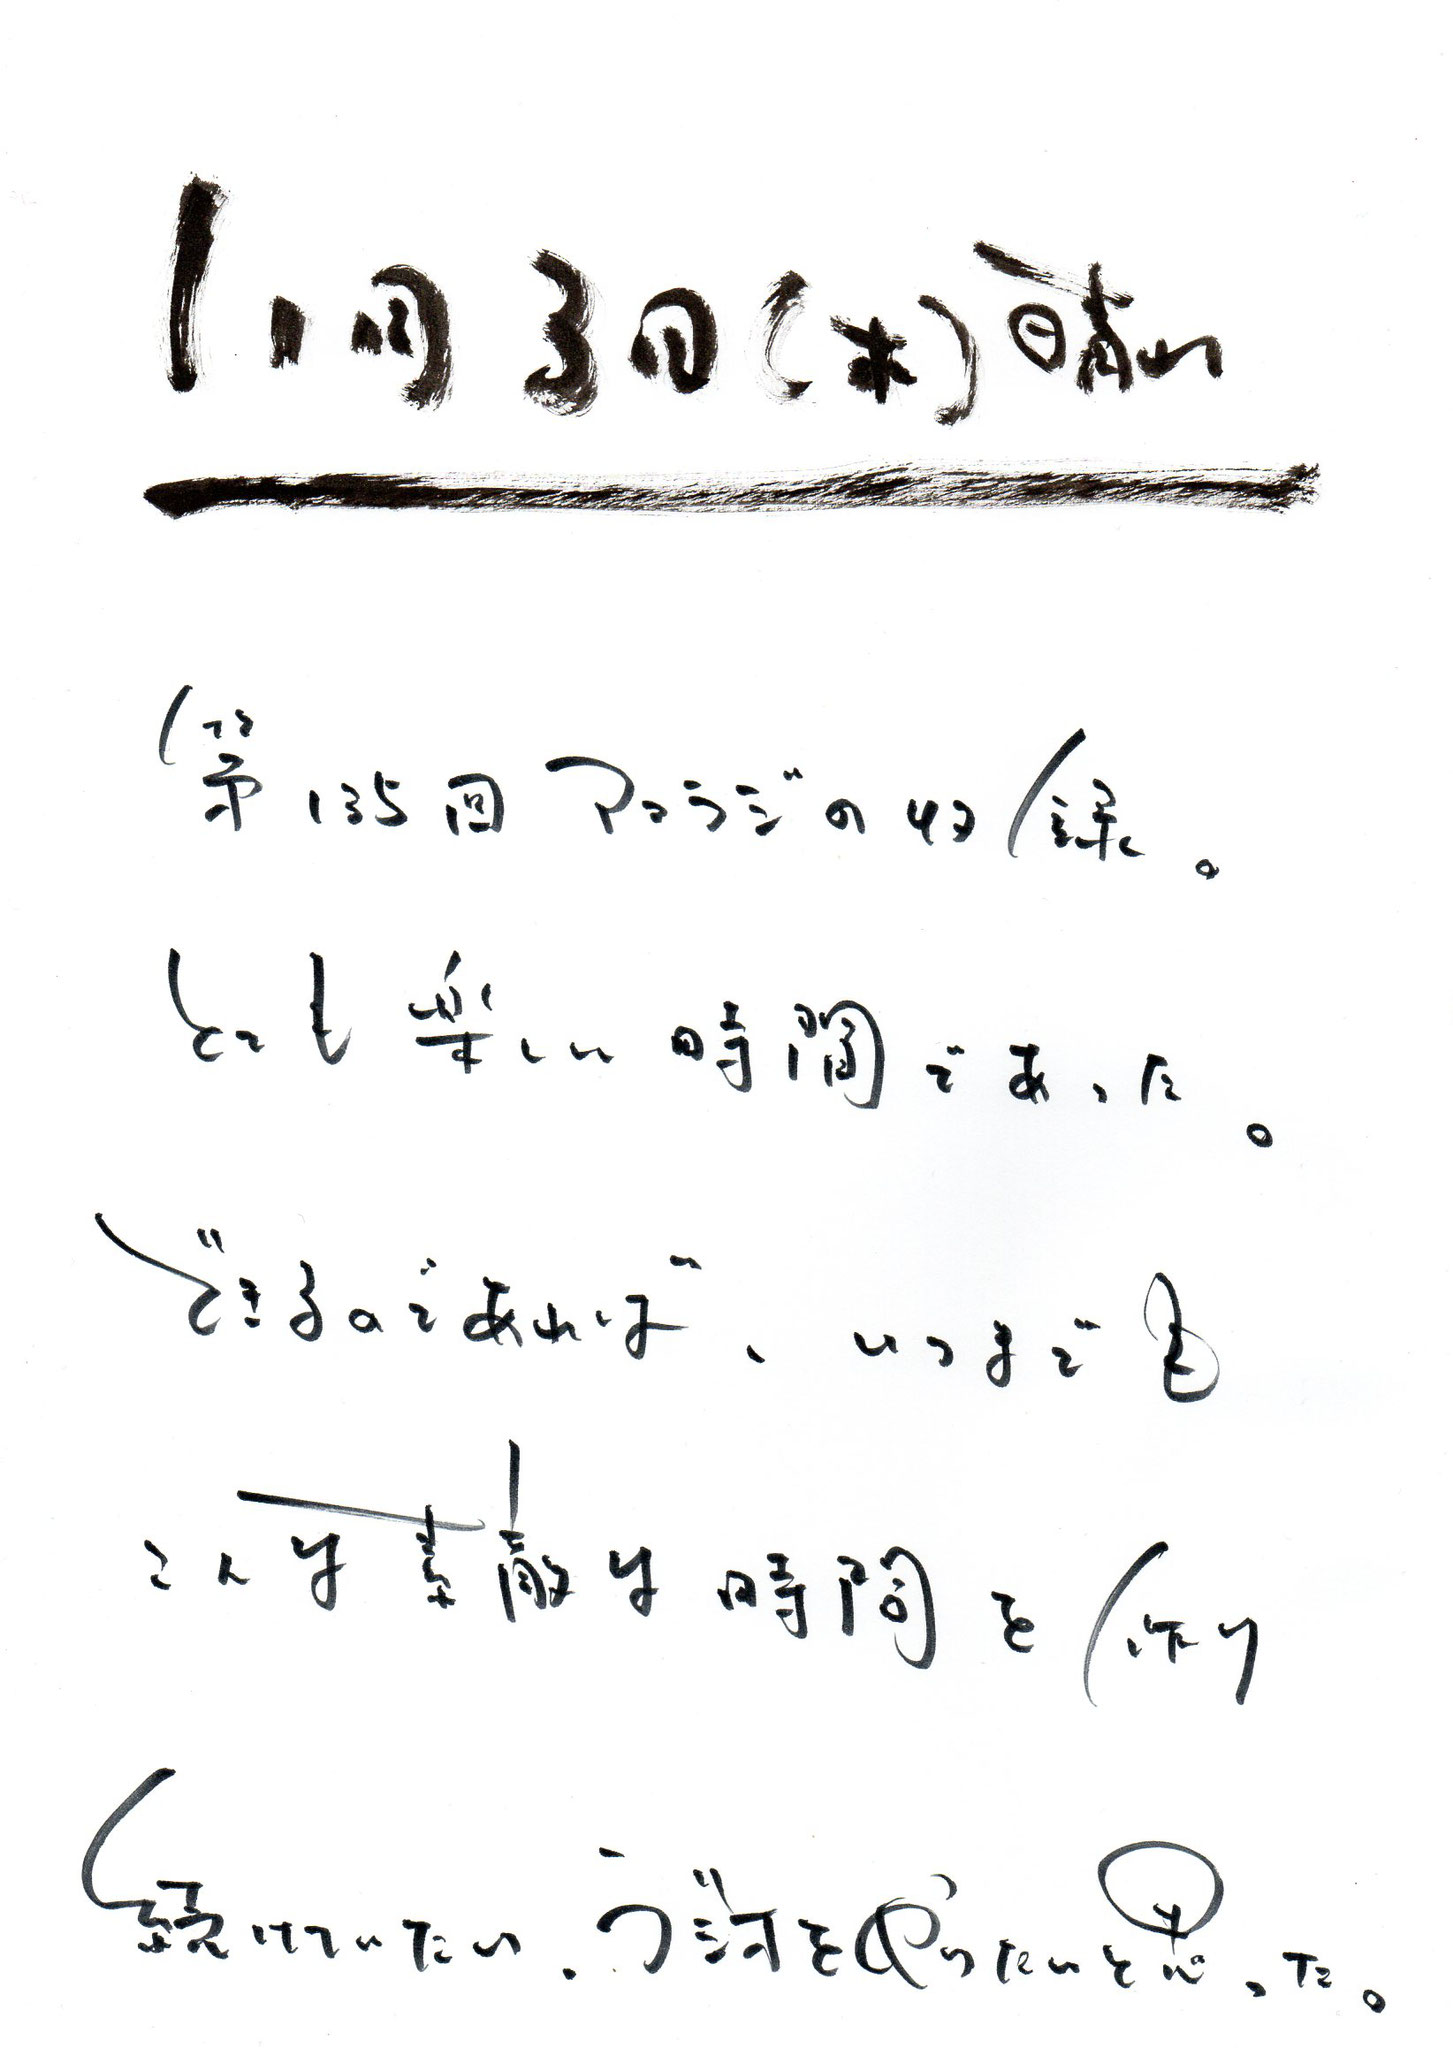 1月3日(木)晴れ
第135回アコラジの収録。
とても楽しい時間であった。
できるのであれば、いつまでも
こんな素敵な時間を作り
続けていたい、ラジオをやりたいと思った。